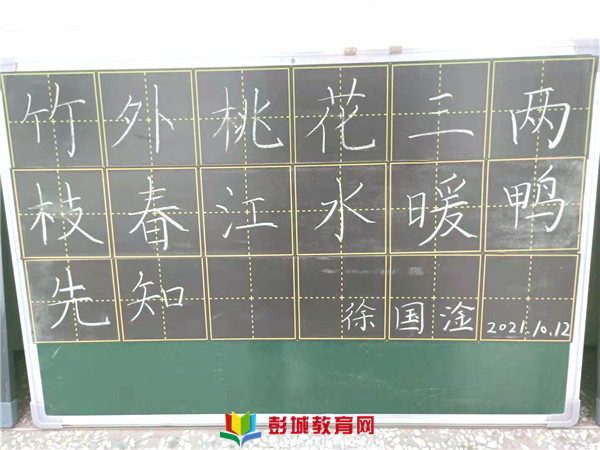 竹外桃花三两
枝春江水暖鸭
先知
徐国淦 2021.10.12
彭城教育网